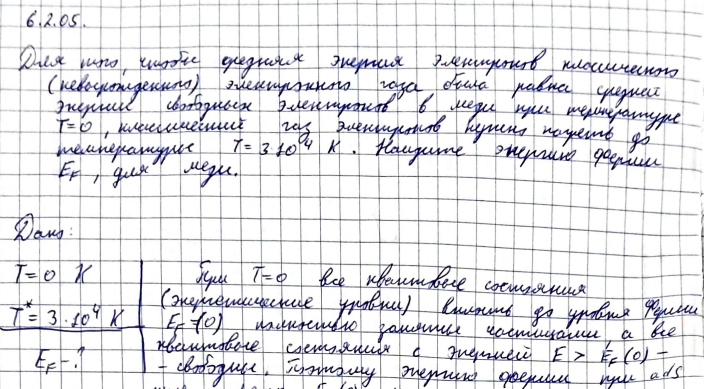 6.2.05.
Для того, чтобы средняя энергия электронов классического
(невырожденного) электронного газа была равна средней
энергии свободных электронов в меди при температуре
T=0, классический газ электронов нужно нагреть до
температуры T = 3·10^4 K. Найдите энергию ферми
E_F, для меди.
Дано:
T = 0 K
T* = 3·10^4 K
E_F - ?
При T=0 все квантовые состояния
(энергетические уровни) вплоть до уровня Ферми
E_F (0) полностью заняты частицами, а все
квантовые состояния с энергией E > E_F (0) –
- свободны. Поэтому энергию ферми при